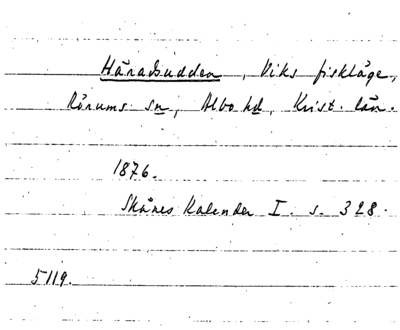 Häradsudden, Viks fiskläge,
Rörums sn, Albo hd, Krist. län.
1876.
Skånes Kalender I. s. 328.
5119.